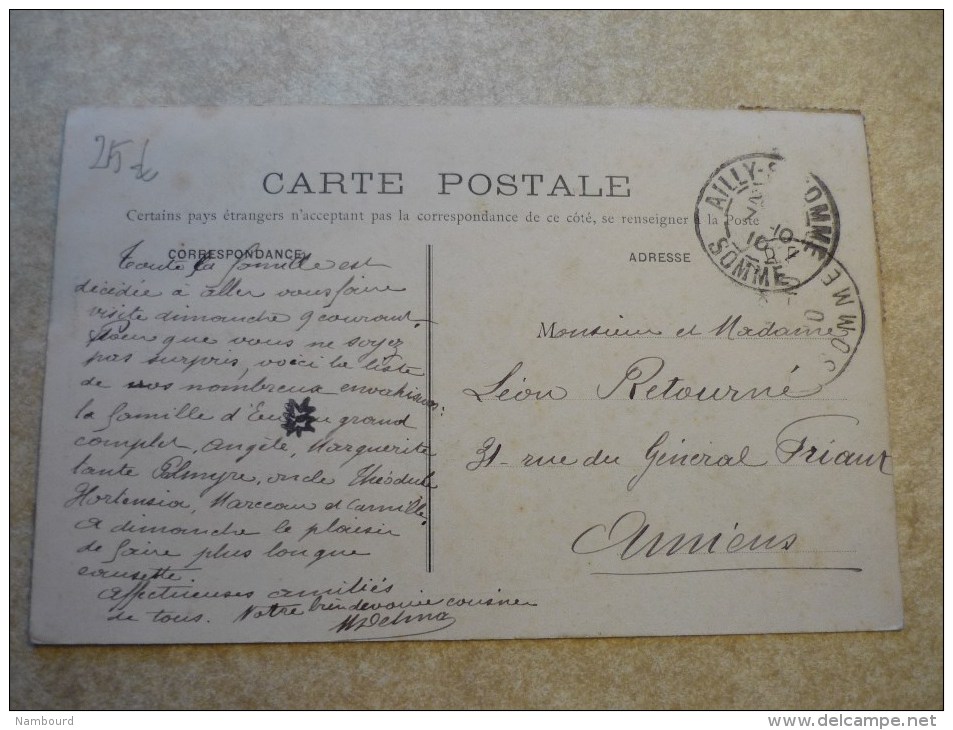 25
CARTE POSTALE
Certains pays étrangers n'acceptent pas la correspondance de ce côté, se renseigner à la Poste
CORRESPONDANCE
Toute la famille est
décidée à aller vous faire
visite dimanche 9 courant.
Pour que vous ne soyez
pas surpris, voici la liste
de vos nombreux envahisseurs:
la famille d'Eu au grand
complet, Angèle, Marguerite
tante Palmyre, oncle Théodule
Hortensia, Marceau et Camille.
A dimanche le plaisir
de faire plus longue
causette.
Affectueuses amitiés
de tous. Votre bien dévouée cousine
ADRESSE
Monsieur et Madame
Léon Retourné
31 rue du Général Friant
Amiens
AILLY-S-SOMME
10
SOMME
SOMME
Nambourd
http://www.delcampe.net